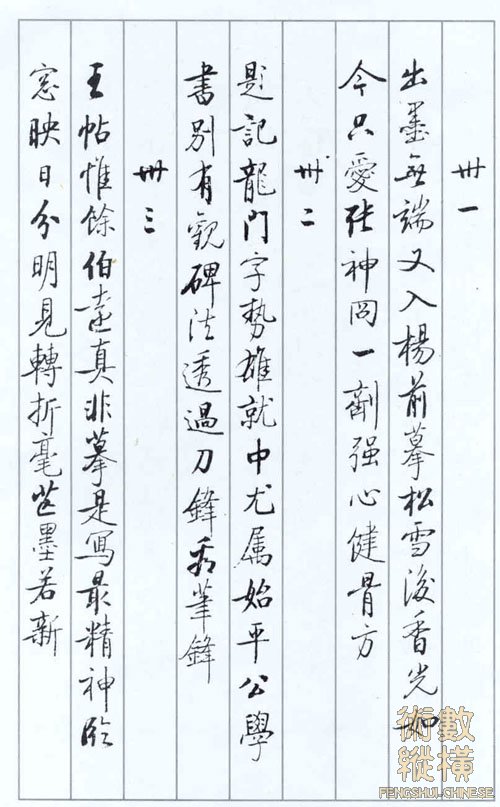 卅一
出墨無端又入楊前摹松雪後香光如
今只愛張神冏一劑强心健骨方
卅二
題記龍門字勢雄就中尤属始平公學
書别有觀碑法透過刀鋒看筆鋒
卅三
王帖惟餘伯遠真非摹是寫最精神臨
窓映日分明見轉折毫芒墨若新
術數
縱橫
FENGSHUI-CHINESE